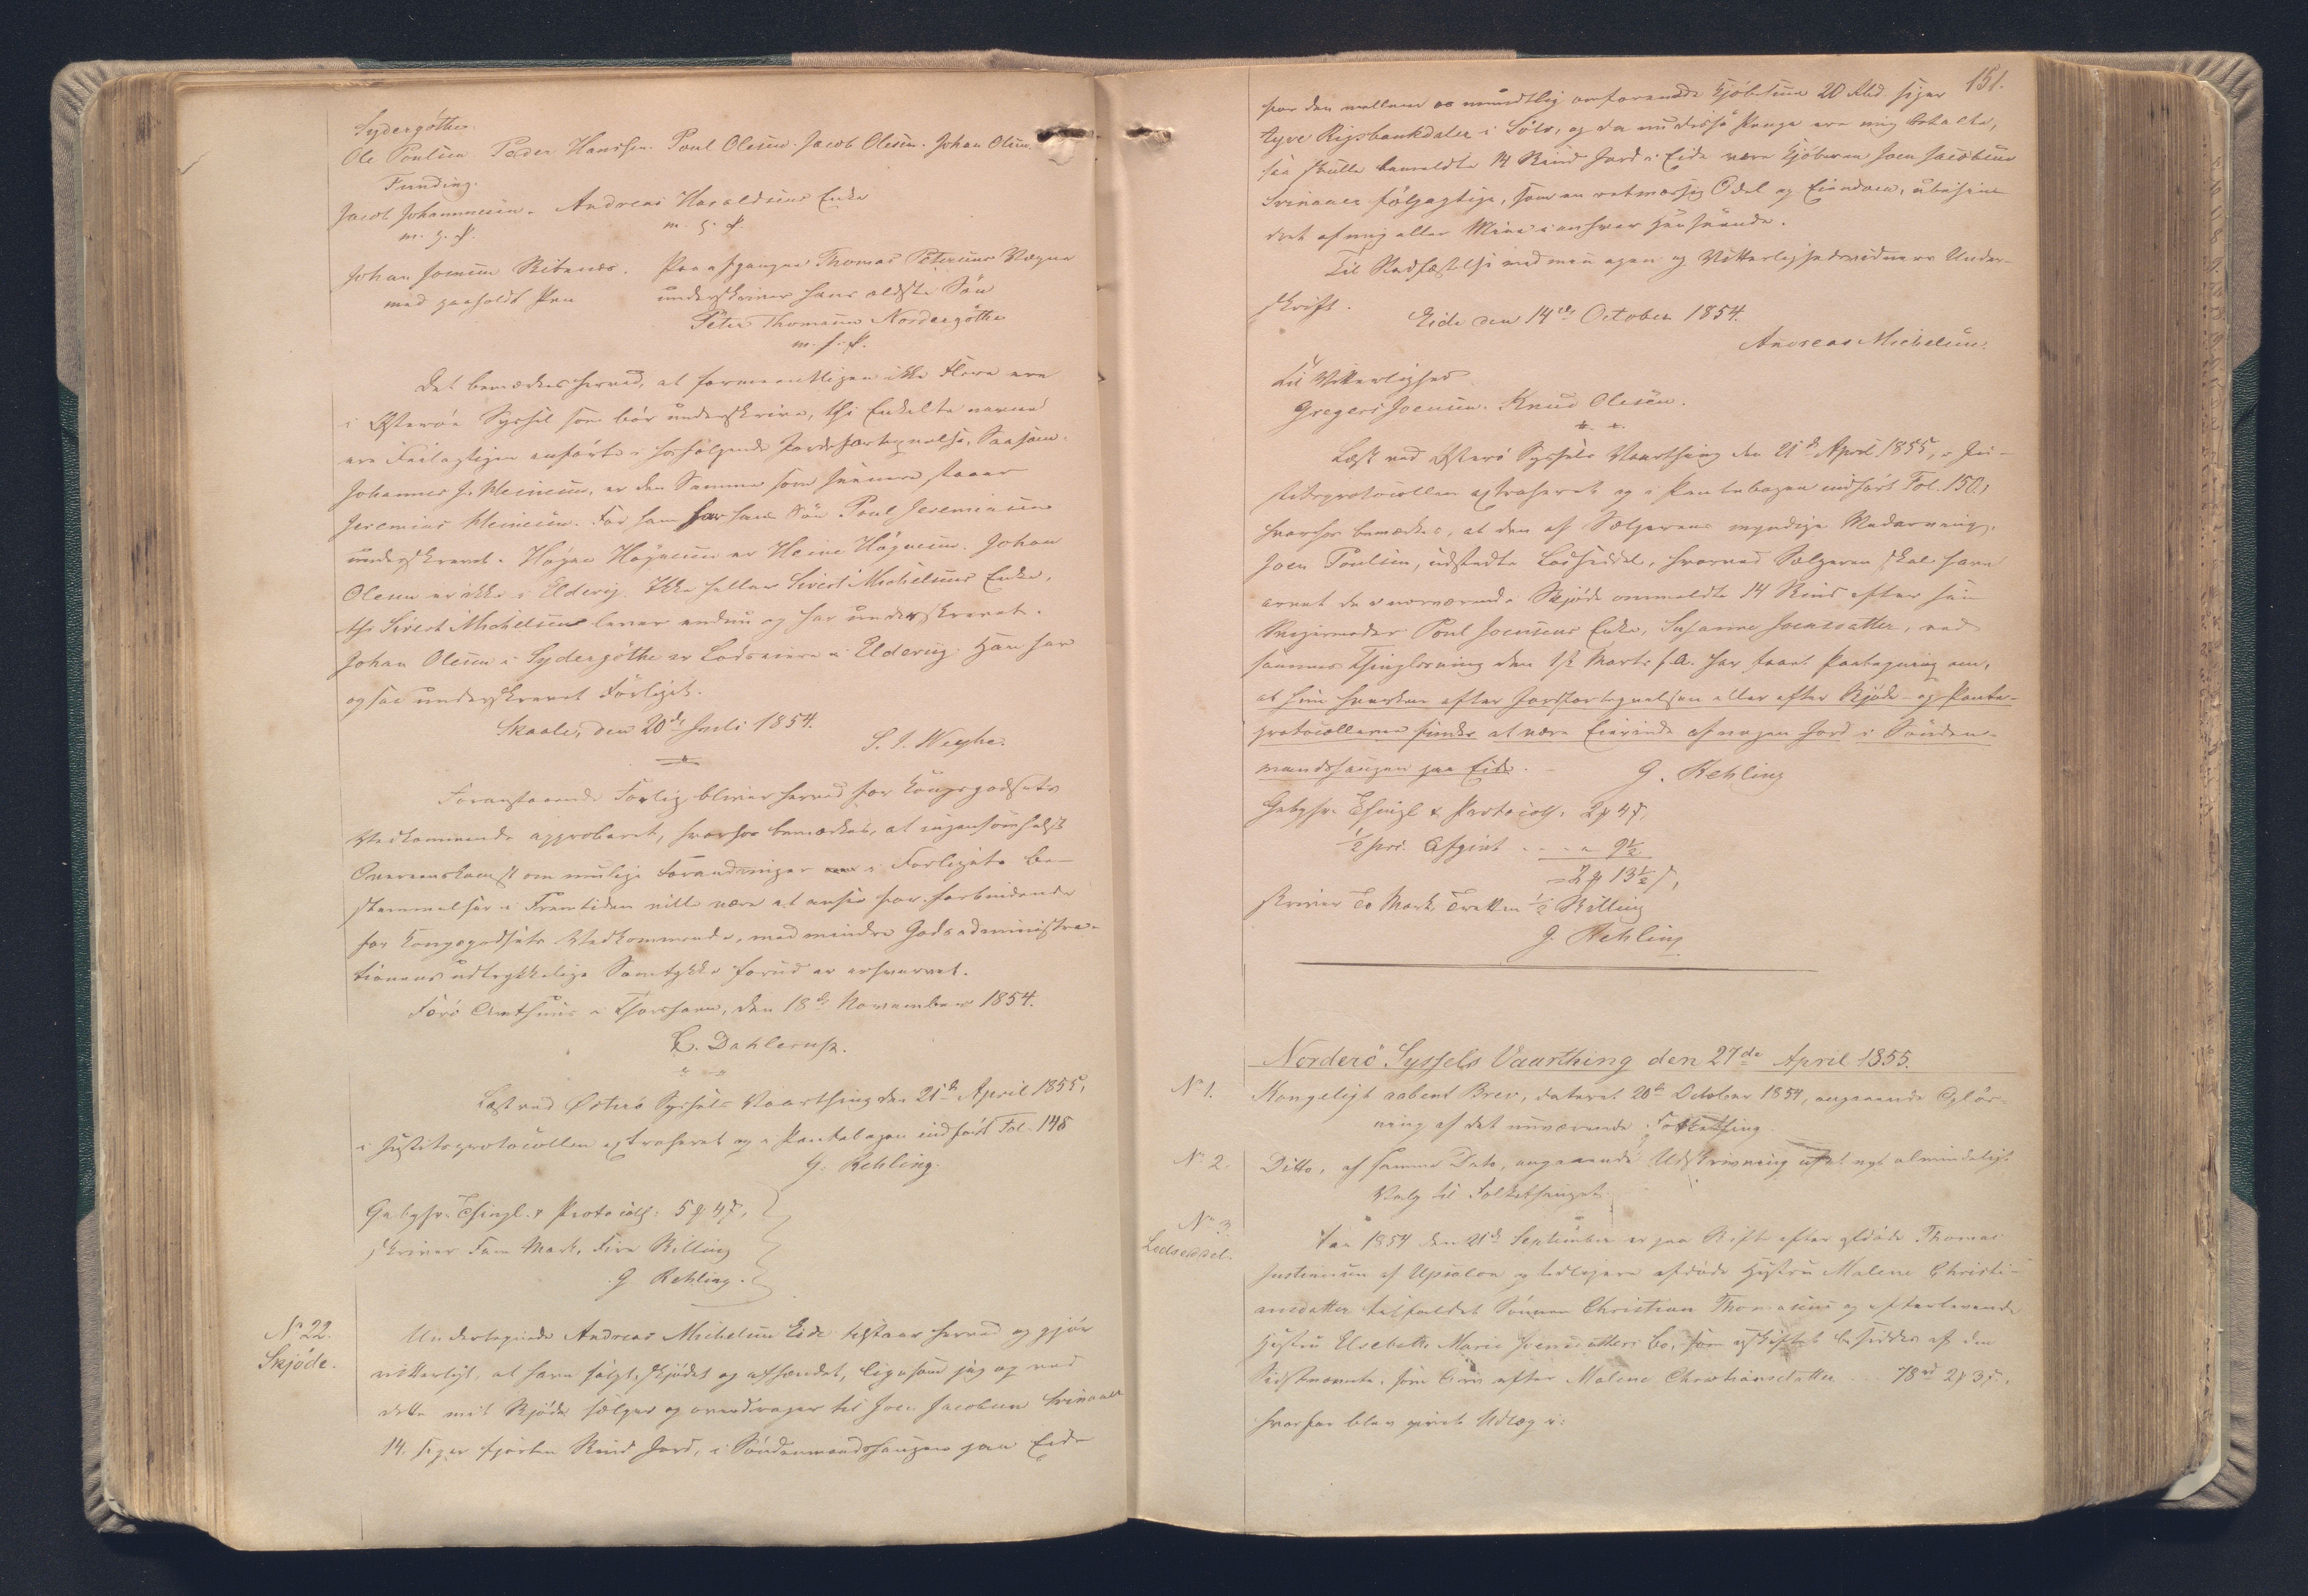 Sydergöthe.
Ole Poulsen Peder Hanssen. Poul Olesen. Jacob Olesen. Johan Olsen.
Funding.
Jacob Johannesen. Andreas Haraldsens Enke
m. h. P. m. h. P.
Johan Joensen Ritenæs. Paa afgangne Thomas Petersens Vegne
med paaholdt Pen underskriver hans ældste Sön
Peter Thomasen Nordregöthe
m. f. P.
Det bemærkes herved, at formeentligen ikke Flere ere
i Österöe Syssel som bör underskrive, thi Enkelte navne
ere Feilagtigen anförte i hosfölgende Jordefortegnelse, Saasom:
Johannes J. Heinesen, er den Samme som senere staaer
Jeremias Heinesen. For ham har hans Sön Poul Jeremiasen
underskrevet. Högne Högnesen er Heine Högnesen. Johan
Olesen er ikke i Eldevig. Ikke heller Sivert Michelsens Enke,
thi Sivert Michelsen lever endnu og har underskrevet.
Johan Olesen i Sydergöthe er Lodseiere i Eldevig. Han har
ogsaa underskrevet Forliget.
Skaale, den 20de Juli 1854.
S. J. Weyhe.
Foranstaaende Forlig bliver herved for Kongsgodsets
Vedkommende approberet, hvorhos bemærkes, at ingensomhelst
Overeenskomst om mulige Forandringer i Forligets be-
stemmelser i Fremtiden ville være at ansee for forbindende
for Kongsgodsets Vedkommende, med mindre Godsadministra-
tionens udtrykkelige Samtykke forud er erhvervet.
Færö Amthuus i Thorshavn, den 18de November 1854.
C. Dahlerup.
Læst ved Österö Syssels Vaarthing den 21de April 1855,
i Justitsprotocollen extraheret og i Pantebogen indfört Fol. 148
G. Rehling.
Gebyhr. Thingl. & Protocoll: 5 ₰ 4 ß,
skriver Fem Mark, Fire Skilling
G Rehling.
No 22.
Skjöde.
Undertegnede Andreas Michelsen Eide tilstaaer herved og gjör
vitterligt, at have solgt, skjödet og afhændet, ligesom jeg og ved
dette mit Skjöde sælger og overdrager til Joen Jacobsen Svinaaer
14. siger fjorten Skind Jord, i Söndenmandshaugen paa Eide
151.
for den mellem os mundtlig omforenede Kjöbesum 20 Rbd. siger
tyve Rigsbankdaler i Sölv, og da nu disse Penge ere mig betalte,
saa skulle bemeldte 14 Skind Jord i Eide være Kjöberen Joen Jacobsen
Svinaaer fölgagtige, som en retmæssig Odel og Eiendom, ubehind-
dret af mig eller Mine i enhver Henseende.
Til Stadfæstelse med min egen og Vitterlighedsvidners Under-
skrift.
Eide den 14de October 1854.
Andreas Michelsen.
Til Vitterlighed
Gregers Joensen. Knud Olesen.
Læst ved Österö Syssels Vaarthing den 21de April 1855, i Ju-
stitsprotocollen extraheret og i Pantebogen indfört Fol. 150,
hvorhos bemærkes, at den af Sælgerens myndige Medarving,
Joen Poulsen, udstedte Lodseddel, hvorved Sælgeren skal have
arvet de i nærværende Skjöde ommeldte 14 Skind efter sin
Svigermoder Poul Joensens Enke, Susanne Joensdatter, ved
sammes Thinglæsning den 12 Marts f. A. har faaet Paategning om,
at hun hverken efter Jordfortegnelsen eller efter Skjöde- og Pante-
protocollerne findes at være Eierinde af nogen Jord i Sönden-
mandshaugen paa Eide.
G. Rehling
Gebyhr. Thingl & Protocoll. 2 ₰ 4 ß,
½ pro. Afgivt - - - " 9½
= 2 ₰ 13½ ß,
skriver To Mark, Tretten ½ Skilling
G. Rehling
Norderö Syssels Vaarthing den 27de April 1855.
No 1. Kongeligt aabent Brev, dateret 20de October 1854, angaaende Oplös-
ning af det nuværende Folkething.
No 2. Ditto, af samme Dato, angaaende Udskrivning af et nyt almindeligt
Valg til Folkethinget.
No 3
Lodseddel.
Aar 1854 den 21de September er paa Skifte efter afdöde Thomas
Justinesen af Upsalen og tidligere afdöde Hustru Malene Christi-
ansdatter tilfaldet Sönnen Christian Thomasens og efterlevende
Hustru Elsebeth Marie Joensdatters Bo, som uskiftet besiddes af den
Sidstnævnte, som Arv efter Malene Christiansdatter . . . 78 rd 2 ₰ 3 ß,
hvorfor blev givet Udlæg i: